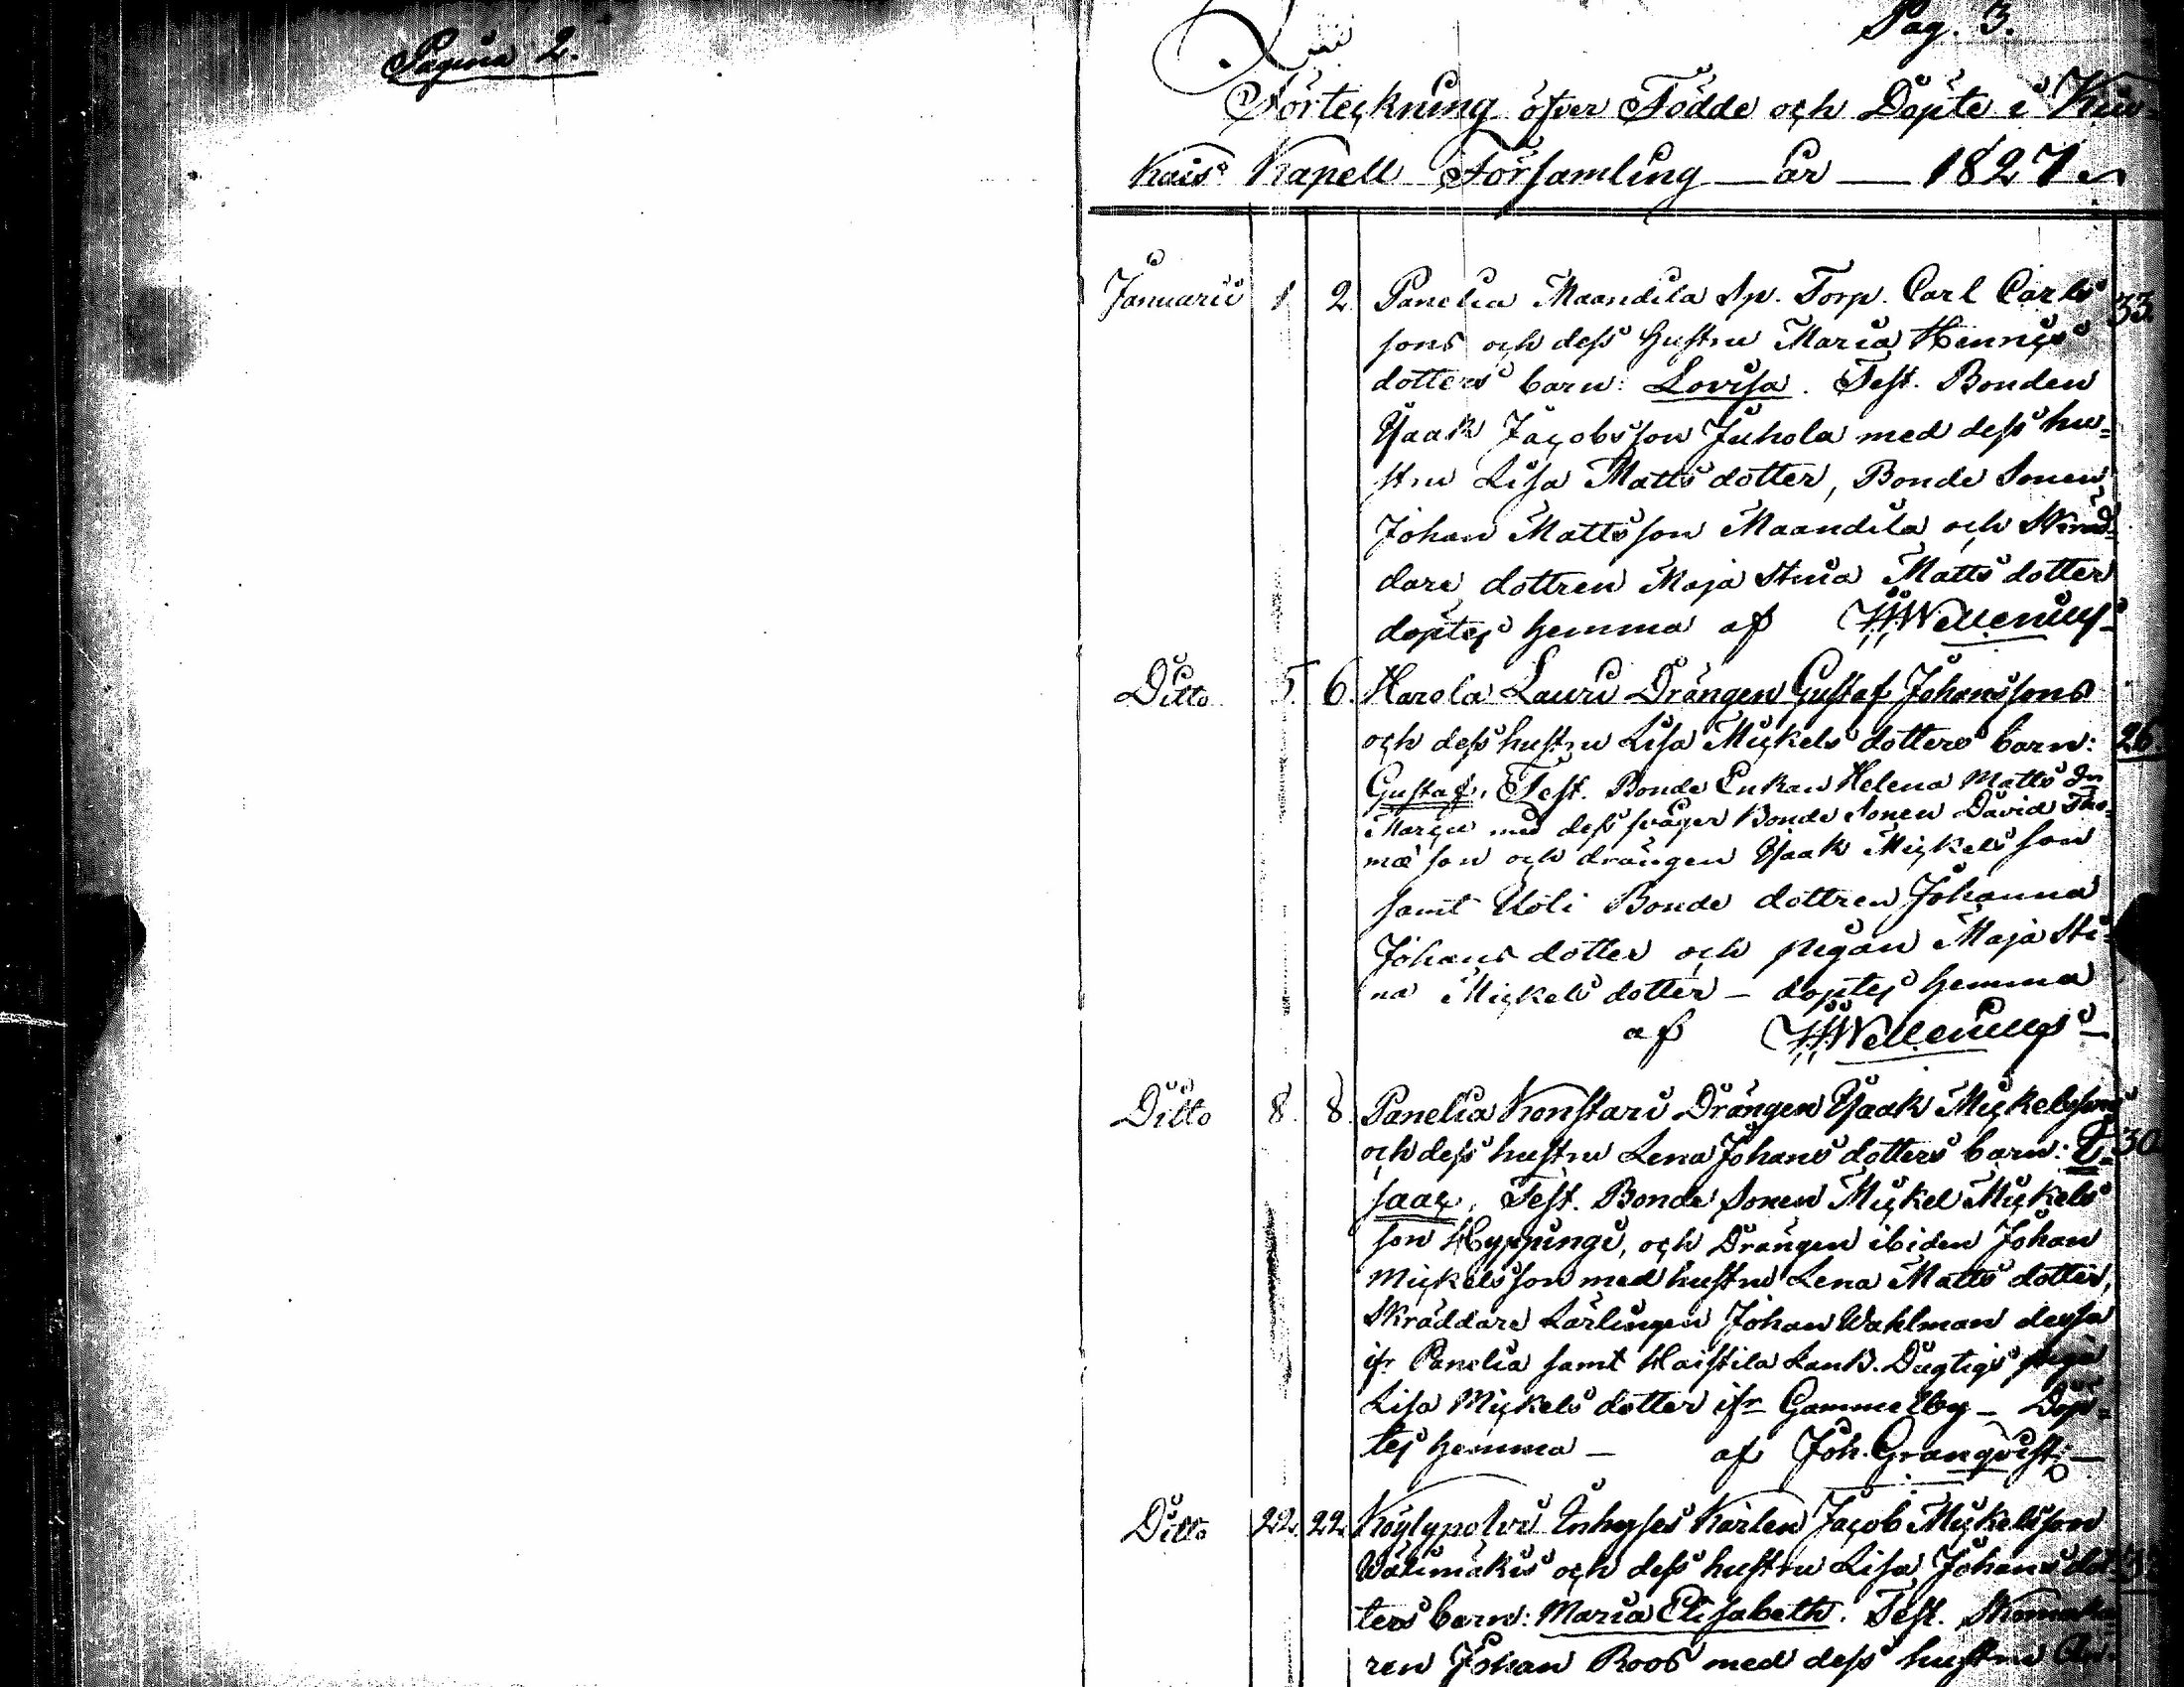 Pagina 2.
Pag. 3.
Förteckning öfver Födde och Döpte i Kiu-
kais Kapell Församling — år — 1827
Januarii 1 2 Panelia Maandila Sp. Torp. Carl Carls 33.
sons och dess hustru Maria Henrics
dotters barn: Lovisa. Test. Bonden
Isaak Jacobsson Juhola med dess hu=
stru Lisa Matts dotter, Bonde Sonen
Johan Matts son Maandila och Skräd=
dare dottren Maja Stina Matts dotter
döptes hemma af Wellenius
Ditto 5. 6. Harola Lauri Drängen Gustaf Johanssons
och dess hustru Lisa Mickels dotters barn: 26.
Gustaf. Test. Bonde Enkan Helena Matts dr
med dess svåger Bonde Sonen David Tho=
mæ son och drängen Isaak Mickels son
samt Uoli Bonde dottren Johanna
Johans dotter och pigan Maja Sti=
na Mickels dotter — döptes hemma
af Wellenius
Ditto 8. 8. Panelia Konstari Drängen Isaak Mickelssons
och dess hustru Lena Johans dotters barn: I= 30
saac. Test. Bonde Sonen Mickel Mickels
son Hyppingi, och Drängen ibiden Johan
Mickelsson med hustru Lena Matts dotter,
Skräddare Lärlingen Johan Wahlman dessa
ifr Panelia samt Haistila Lank. Dugtigs piga
Lisa Mickels dotter ifr Gammelby — Döp=
tes hemma — af Joh. Granqvist —
Ditto 22. 22. Köylypolvi Inhyses Karlen Jacob Mickelsson
Wälimäkis och dess hustru Lisa Johans dot
ters barn: Maria Elisabeth. Test. Skomaka
ren Johan Roos med dess hustru An